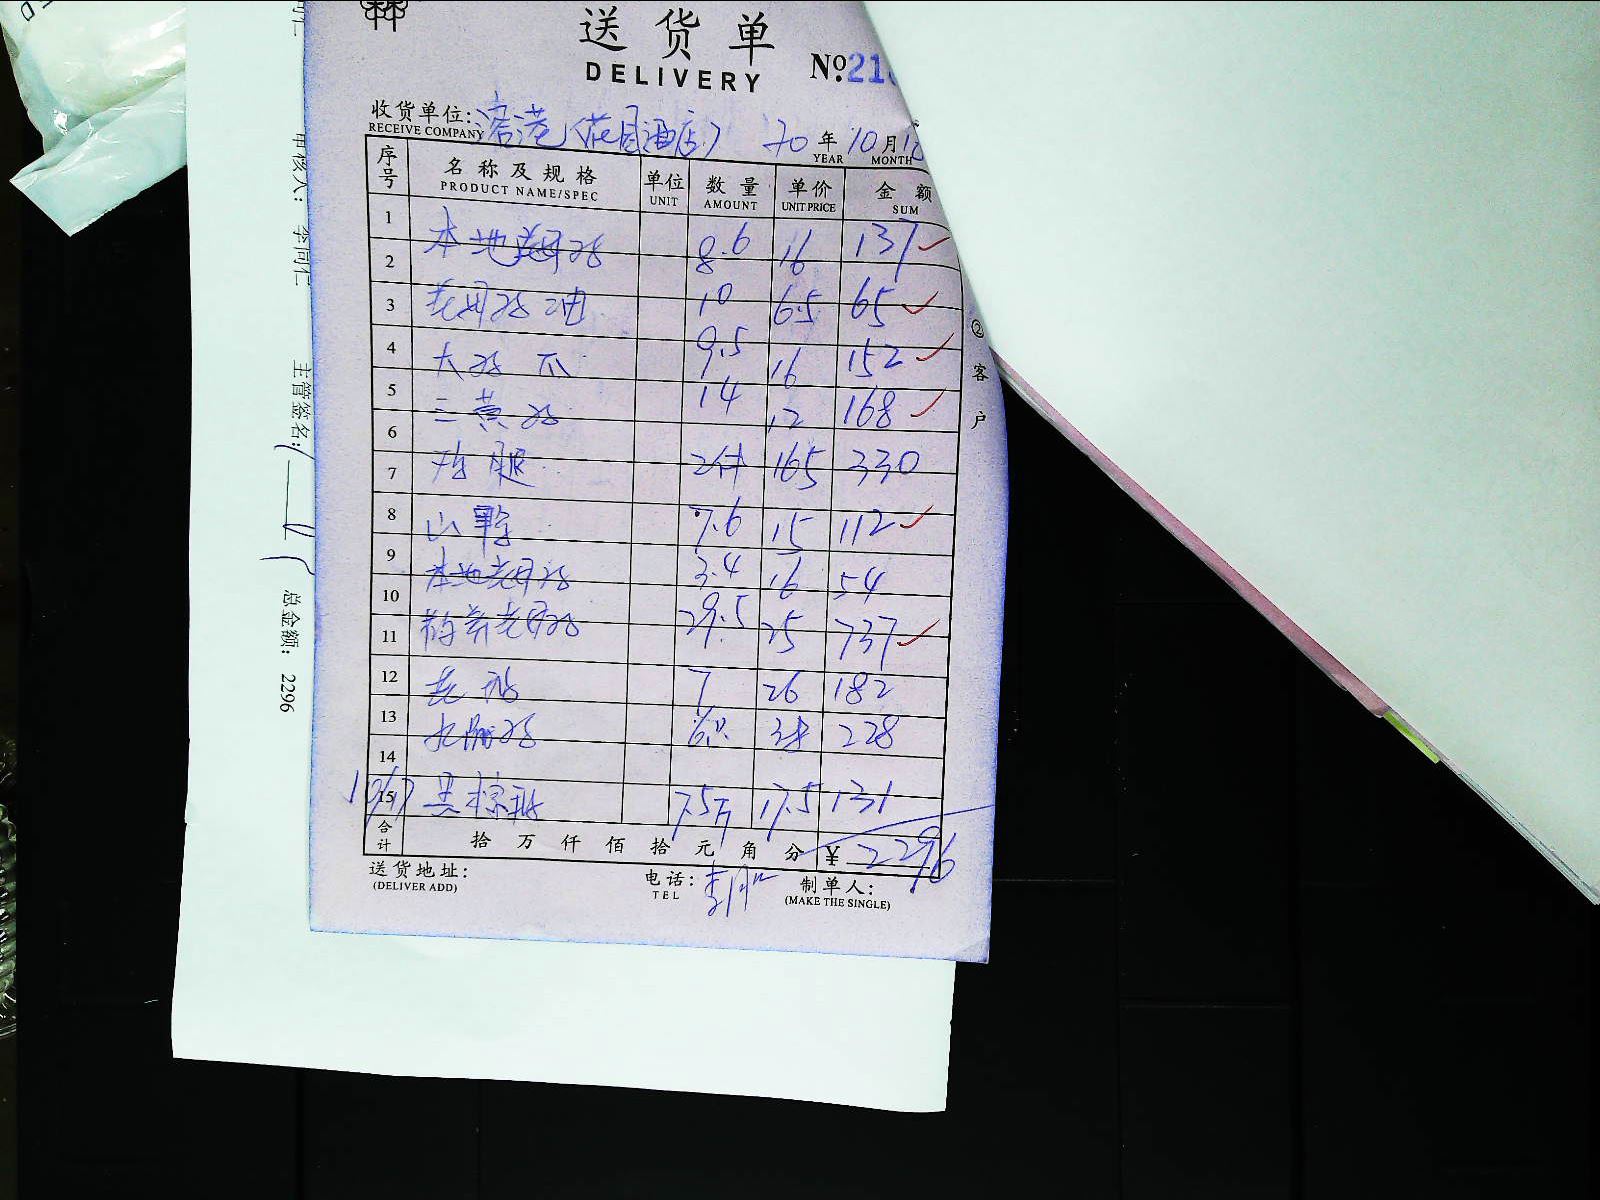 送货单
DELIVERY
№21
收货单位: 港(花园酒店) 20年10月1
RECEIVE COMPANY YEAR MONTH
序号 名称及规格 单位 数量 单价 金额
PRODUCT NAME/SPEC UNIT AMOUNT UNIT PRICE SUM
1 本地母鸡 8.6 16 137
2
3 老母鸡油 10 6.5 65
4 大鸡爪 9.5 16 152
5 三黄鸡 14 12 168
6
7 腿 2件 165 330
8 山 7.6 15 112
9 本地老母鸡 3.4 16 54
10
11 养老母鸡 29.5 25 737
12 老 7 26 182
13 鸡 6只 38 228
14
15 10/17 黑棕 7.5斤 17.5 131
合计 拾万仟佰拾元角分 ¥2296
送货地址: 电话: 制单人:
(DELIVER ADD) TEL (MAKE THE SINGLE)
②客户
审核人: 李同仁
主管签名:
总金额: 2296